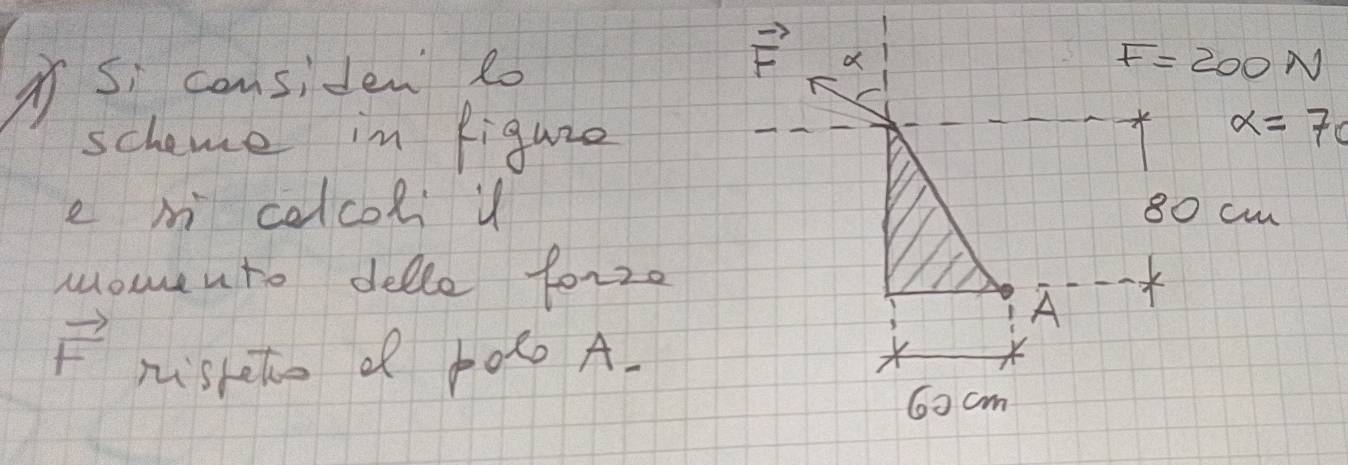 1) Si consideri lo
schema in figura
e si calcoli il
momento della forza
F rispetto al polo A.
F
α
F = 200 N
α = 70
80 cm
A
60 cm